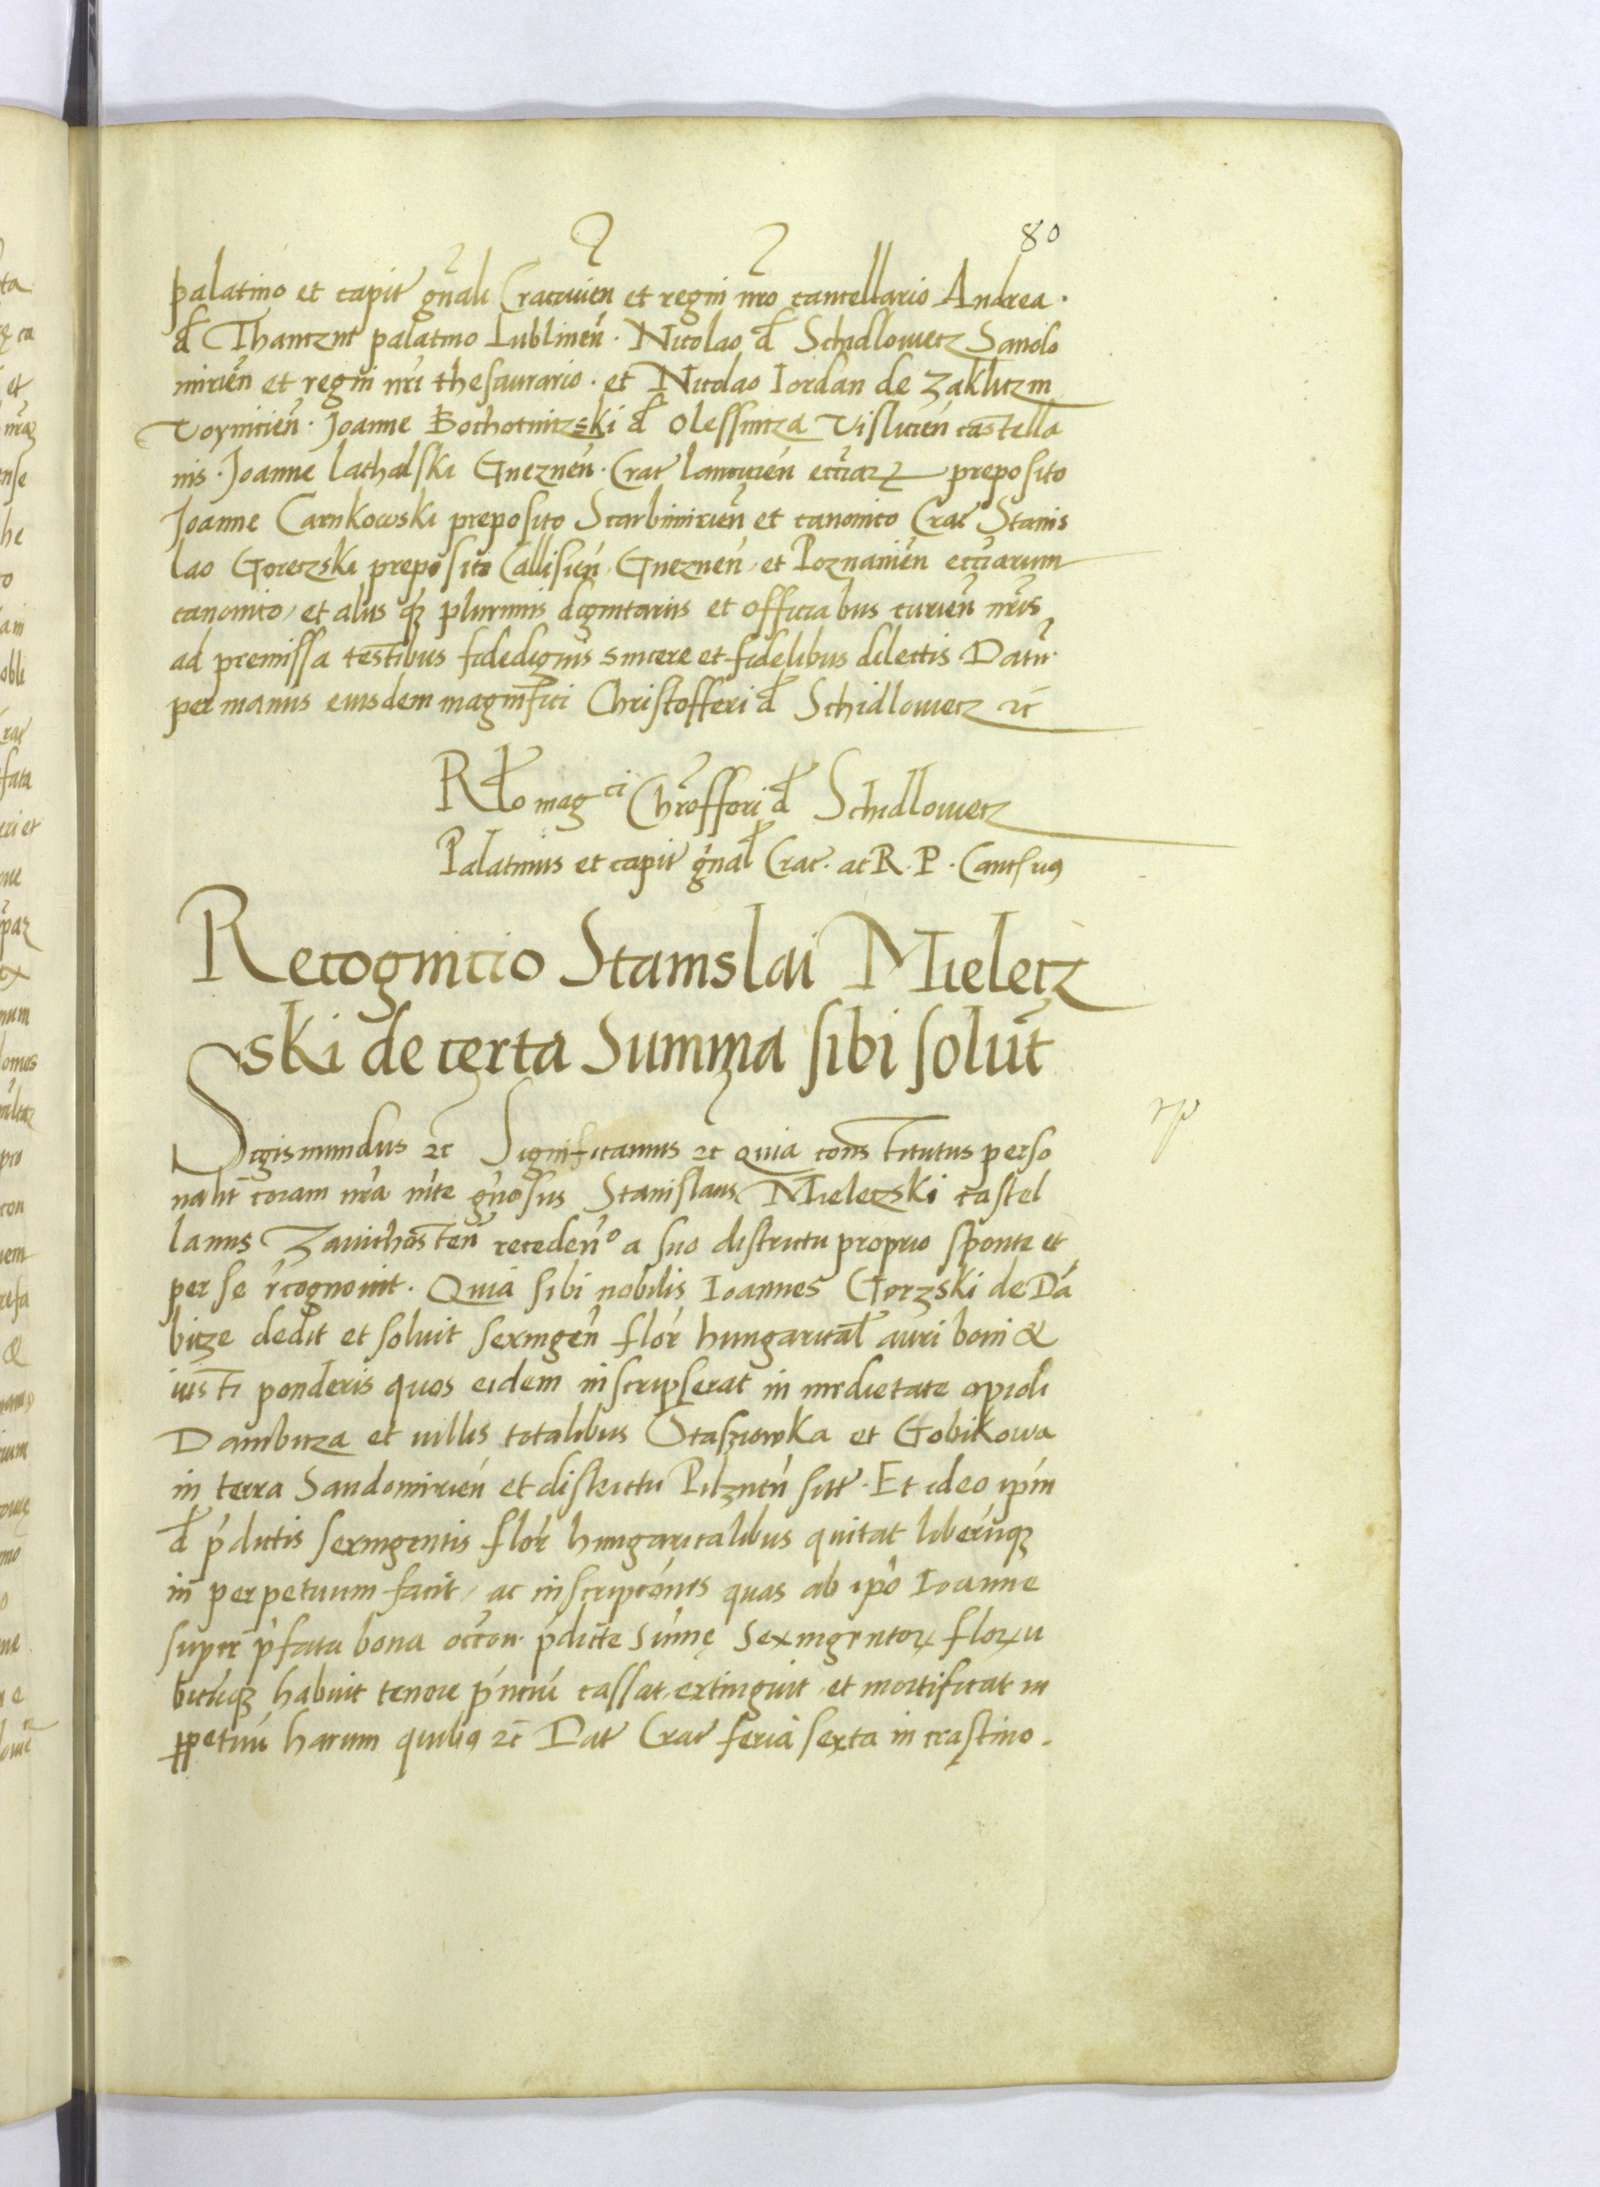 80
palatino et capit gñali Cracovieñ et regni nro cancellario Andrea ·
d Thanczin palatino Lublineñ · Nicolao d Schidlowiecz Sando
mirieñ et regni nri thesaurario · et Nicolao Iordan de Zakliczin
Voyniczieñ · Joanne Bochotnitzski d Olessnicza Vislicieñ castella
nis · Joanne Lathalski Gnezneñ · Crac Lancicieñ eccliarꝝ preposito
Joanne Carnkowski preposito Scarbimirieñ et canonico Crac Stanis
lao Goreczski preposito Callisieñ Gnezneñ et Poznanieñ eccliarum
canonico, et aliis qꝫ plurimis dignitariis et officialibus curieñ nris
ad premissa testibus fidedignis sincere et fidelibus dilectis Datū ·
per manus eiusdem magnifici Christofferi d Schidlowiecz ꝛc̄
Rlo magci Chroffori d Schidlowiecz
Palatinus et capit gñal Crac · ac R · P · Cancrius
Recognicio Stanislai Mielecz
ski de certa Summa sibi solut
Sigismundus ꝛc̄ Significamus ꝛc quia constitutus perso
nalit coram nra mte gñosus Stanislaus Mieleczski castel
lanus Zavichosteñ recedeñ° a suo districtu proprio sponte et
per se rcognovit · Quia sibi nobilis Ioannes Gorzski de Dā
bicze dedit et soluit sexingeñ flor hungarical auri boni &
iusti ponderis quos eidem inscripserat in medietate opidi
Dambicza et villis totalibus Stasziowka et Gobikowa
in terra Sandomirieñ et districtu Pilzneñ sitt · Et ideo ipm
d pdictis sexingentis flor hungaricalibus quitat liberūqꝫ
in perpetuum facit, ac inscripcones quas ab ipo Ioanne
super pfata bona occōn pdicte sūmę sexingentorꝝ florꝝ u
bicūqꝫ habuit tenore pñciū cassat, extinguit et mortificat in
ꝑpetuū harum quibꝰ ꝛc̄ Dat Crac feria sexta in crastino ·